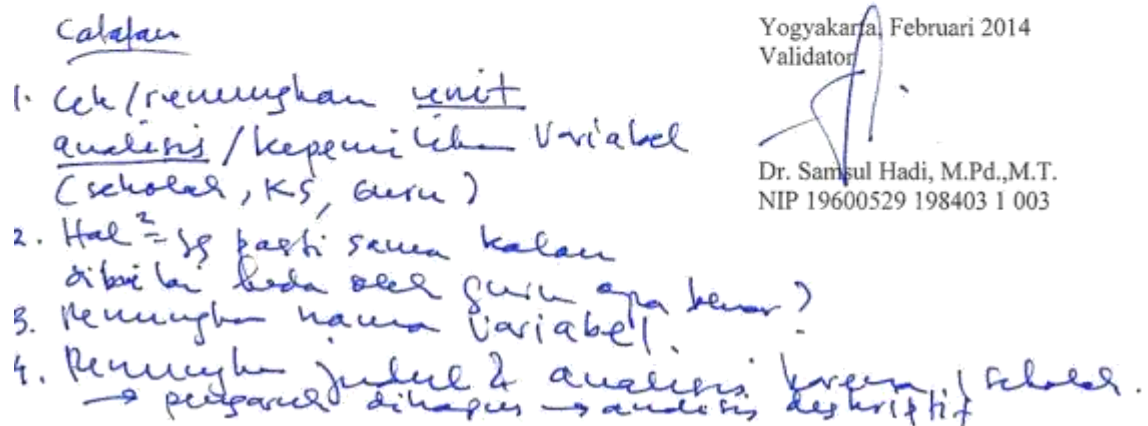 Catatan
1. Cek/renungkan unit
analisis/kepemilikan Variabel
(sekolah, KS, Guru)
2. Hal² yg pasti sama kalau
dinilai beda oleh guru apa benar?
3. Renungkan nama Variabel.
4. Renungkan judul & analisis karena 1 sekolah.
→ pengaruh dihapus → analisis deskriptif
Yogyakarta, Februari 2014
Validator
Dr. Samsul Hadi, M.Pd.,M.T.
NIP 19600529 198403 1 003